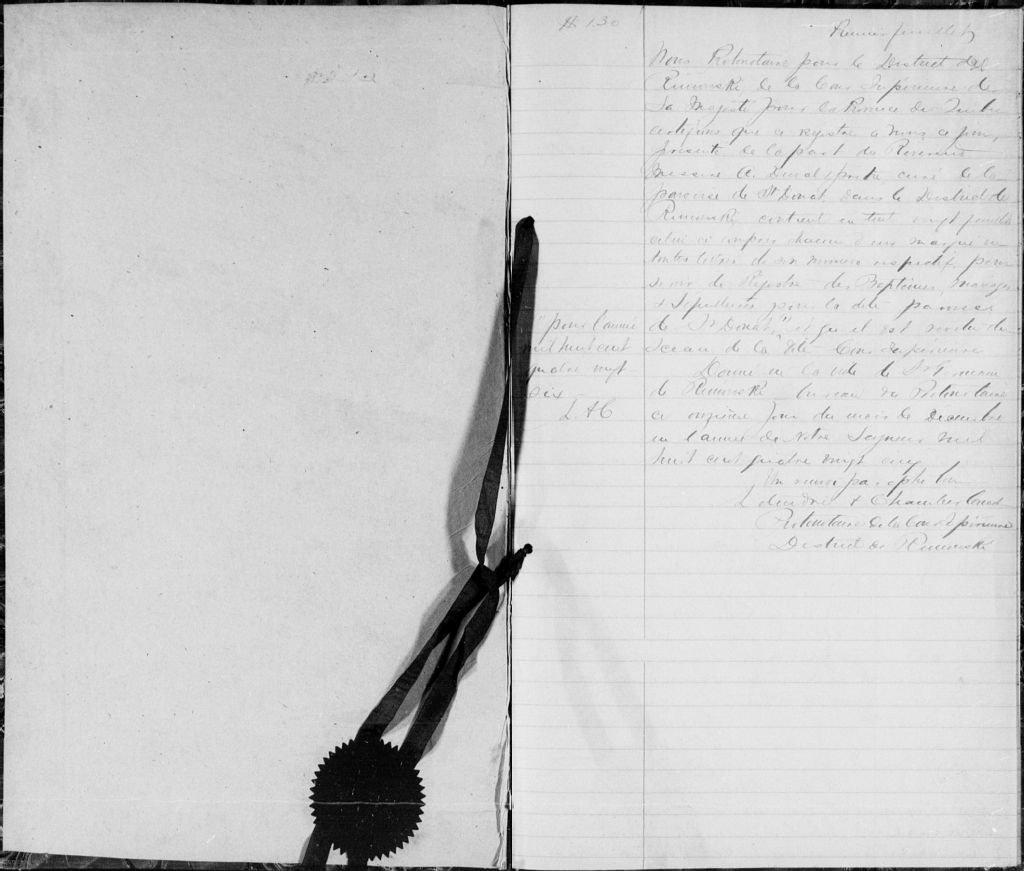 # 130
Premier feuillet
Nous Protonotaire pour le District de
Rimouski de la Cour Supérieure de
Sa Majesté pour la Province de Québec
certifions que ce registre a nous ce jour,
présenté de la part du Révérend
Messire A. Duval, prêtre curé de la
paroisse de St Donat dans le District de
Rimouski contient en tout vingt feuillets
celui ci compris chacun d'eux marqué en
toutes lettres de son numéro respectif, pour
servir de Registre des Baptêmes, Mariages
& Sépultures pour la dite paroisse
de St Donat, " et qu'il est revêtu du
Sceau de la dite Cour Supérieure
" pour l'année
mil huit cent
quatre vingt
six
L & C
Donné en la ville de St Germain
de Rimouski bureau du Protonotaire
ce onzième jour du mois de Décembre
en l'année de Notre Seigneur mil
huit cent quatre vingt cinq
Un renvoi paraphé bon
& Chamberland
Protonotaire de la Cour Supérieure
District de Rimouski